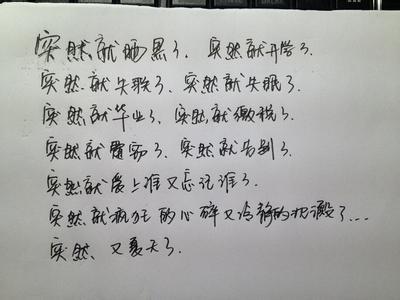 突然就晒黑了、突然就开学了、
突然就失联了、突然就失眠了、
突然就毕业了、突然就缴税了、
突然就震动了、突然就告别了、
突然就爱上谁又忘记谁了、
突然就疯狂的心碎又冷静的把握了...
突然、又夏天了、